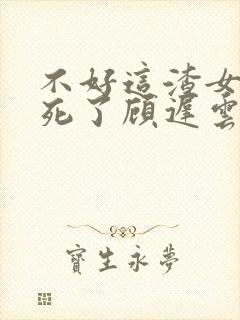 不好這渣女
死了顾遅雲
寶生永夢